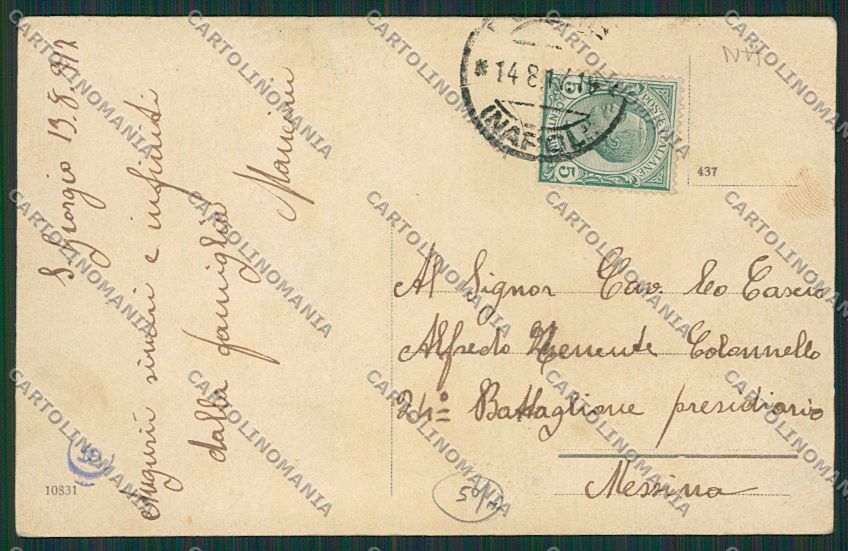 S. Giorgio 13.8.917
Auguri sinceri e infiniti
dalla famiglia
*14 8.17 18
(NAPOLI)
POSTE ITALIANE
5 CENT 5
437
Al Signor Cav. Lo Cascio
Alfredo Tenente Colonnello
24° Battaglione presidiario
Messina
10831
CARTOLINOMANIA